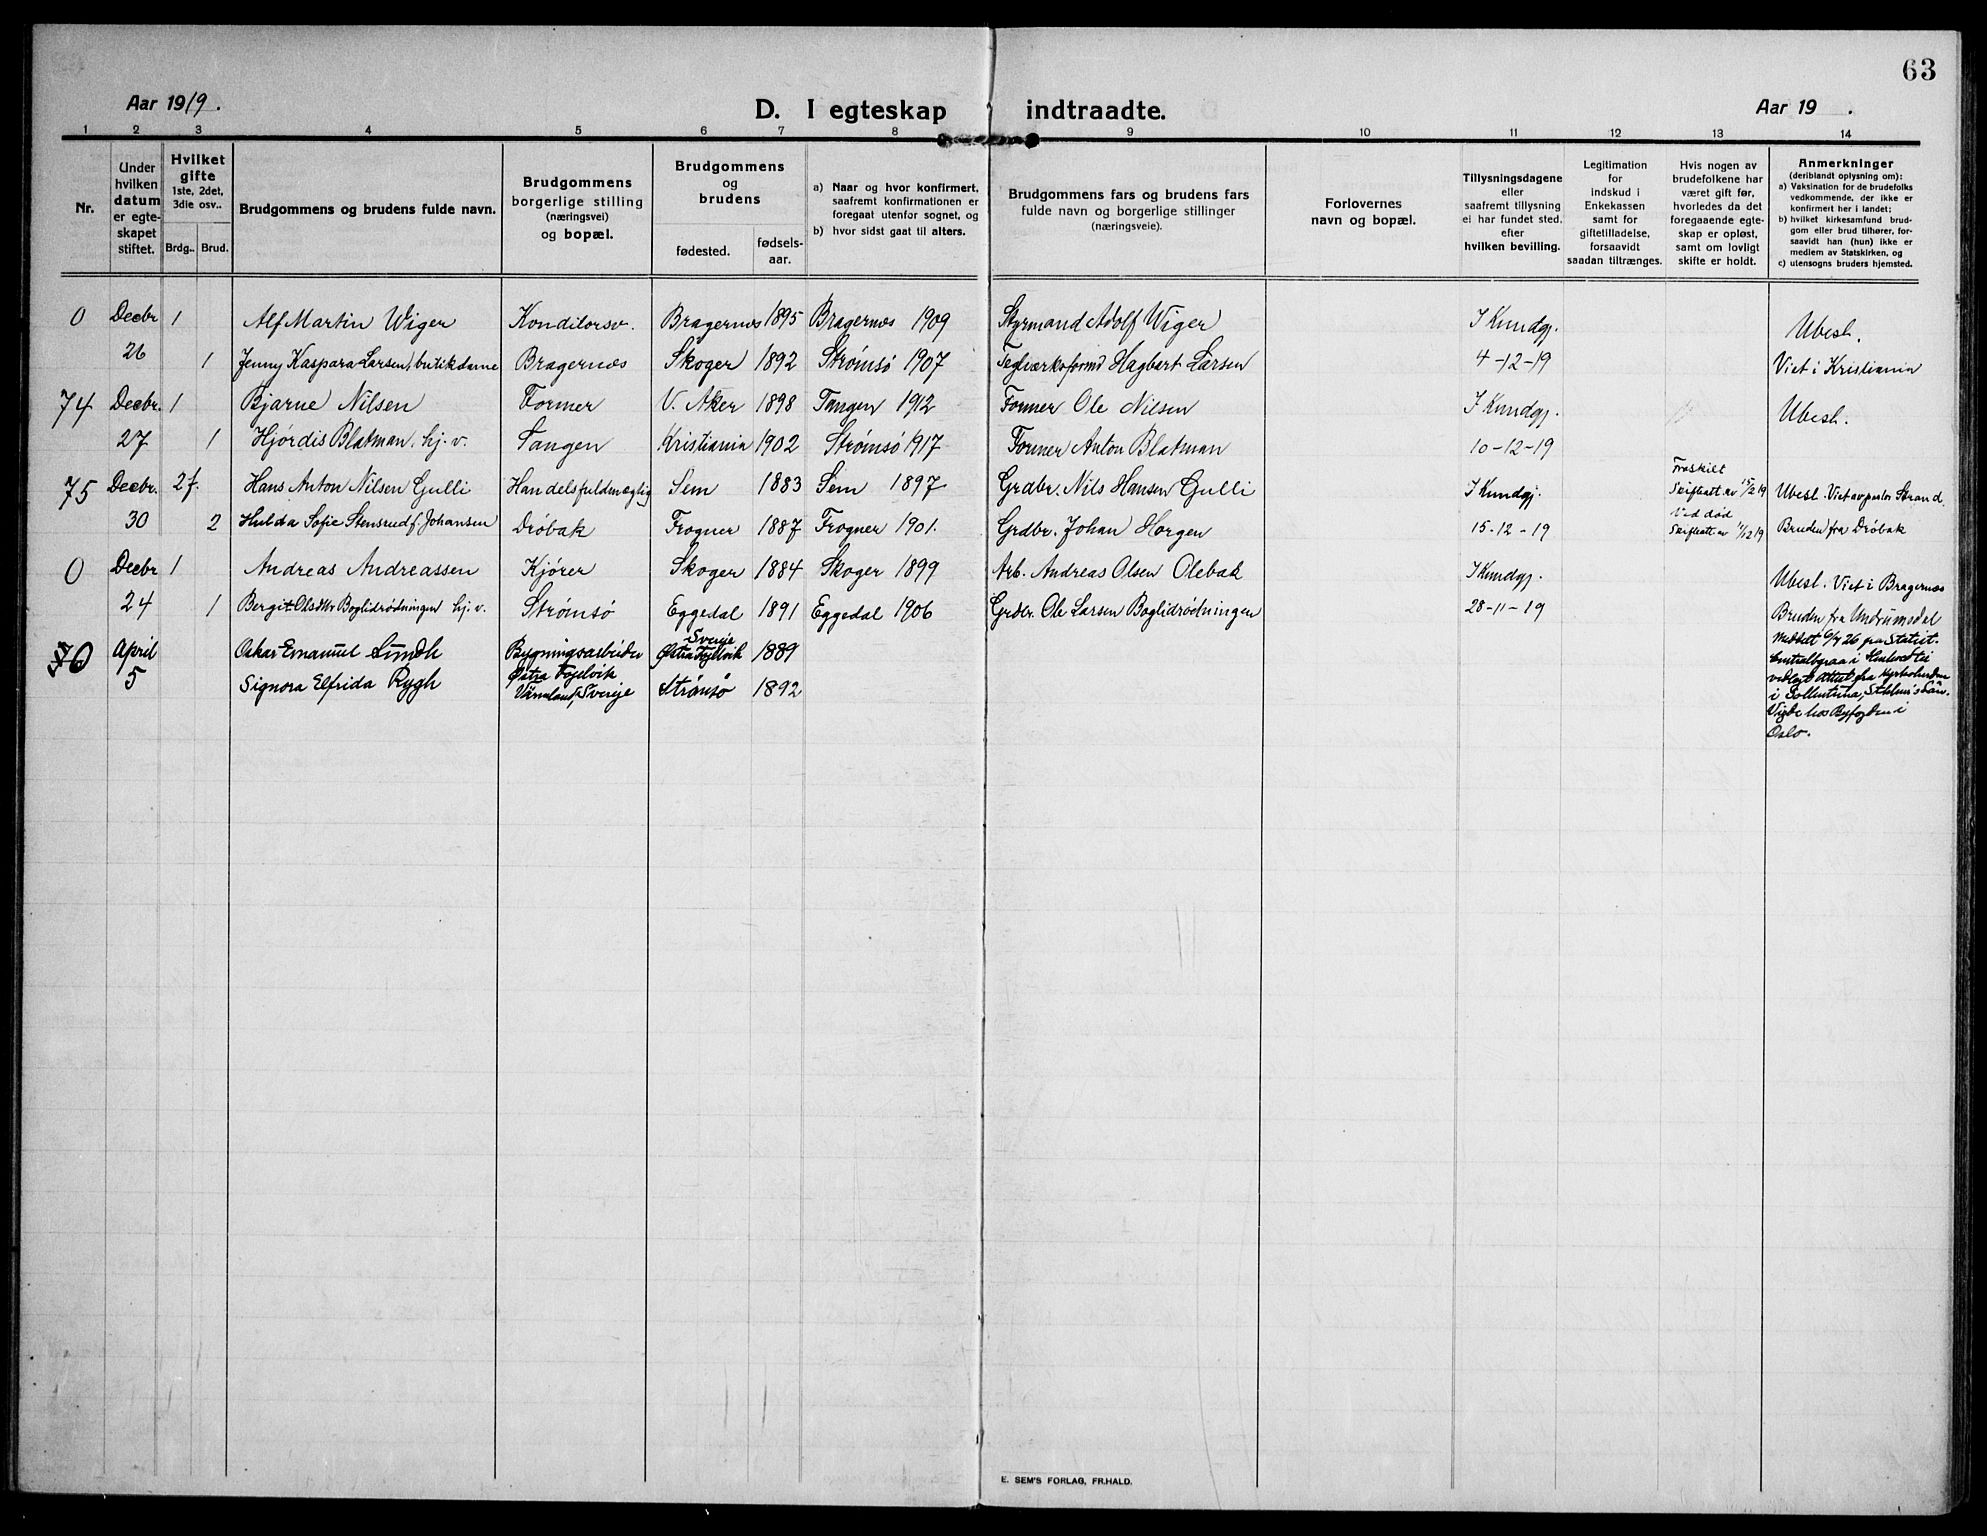 63
Aar 1919. D. I egteskap indtraadte. Aar 19 .
1 2 3 4 5 6 7 8 9 10 11 12 13 14
Nr.
Under
hvilken
datum
er egte-
skapet
stiftet.
Hvilket
gifte
1ste, 2det,
3die osv..
Brdg.. Brud.
Brudgommens og brudens fulde navn.
Brudgommens
borgerlige stilling
(næringsvei)
og bopæl.
Brudgommens
og
brudens
fødested. fødsels-
aar.
a) Naar og hvor konfirmert,
saafremt konfirmationen er
foregaat utenfor sognet, og
b) hvor sidst gaat til alters.
Brudgommens fars og brudens fars
fulde navn og borgerlige stillinger
(næringsveie).
Forlovernes
navn og bopæl.
Tillysningsdagene
eller
saafremt tillysning
ei har fundet sted,
efter
hvilken bevilling.
Legitimation
for
indskud i
Enkekassen
samt for
giftetilladelse,
forsaavidt
saadan tiltrænges.
Hvis nogen av
brudefolkene har
været gift før,
hvorledes da det
foregaaende egte-
skap er opløst,
samt om lovligt
skifte er holdt.
Anmerkninger
(deriblandt oplysning om):
a) Vaksination for de brudefolks
vedkommende, der ikke er
konfirmert her i landet;
b) hvilket kirkesamfund brud-
gom eller brud tilhører, for-
saavidt han (hun) ikke er
medlem av Statskirken, og
c) utensogns bruders hjemsted.
0 Decbr 1 Alf Martin Wiger Konditorsv. Bragernes 1895 Bragernes 1909 Styrmand Adolf Wiger I Kundgj. Ubesl.
26 1 Jenny Kaspara Larsen, butikdame Bragernes Skoger 1892 Strømsø 1907 Teglverksformd Hagbart Larsen 4-12-19 Viet i Kristiania
74 Decbr. 1 Bjarne Nilsen Former V. Aker 1898 Tangen 1912 Former Ole Nilsen I Kundgj. Ubesl.
27 1 Hjørdis Blatman. hj. v. Tangen Kristiania 1902 Strømsø 1917 Former Anton Blatman 10-12-19
75 Decbr. 2 f. Hans Anton Nilsen Gulli Handelsfuldmægtig Sem 1883 Sem 1897 Grdbr. Nils Hansen Gulli I Kundgj. Fraskilt Skifteatt av 15/2 19 Ubesl. Viet av pastor Strand.
30 2 Hulda Sofie Stensrud f. Johansen Drøbak Frogner 1887 Frogner 1901. Grdbr. Johan Horgen 15-12-19 Ved død Skifteatt. av 11/12 19 Bruden fra Drøbak
0 Decbr 1 Andreas Andreassen Kjører Skoger 1884 Skoger 1899 Arb. Andreas Olsen Olebak I Kundgj. Ubesl. Viet i Bragernes
24 1 Bergit Olsdtr Boglidrødningen hj. v. Strømsø Eggedal 1891 Eggedal 1906 Grdbr. Ole Larsen Boglidrødningen 28-11-19 Bruden fra Undrumsdal
70 April Oskar Emanuel Lundh Bygningsarbeider Sverje Østra 1889
5 Signora Elfrida Rygh Østra Värmland, Sverje Strømsø 1892
Meddelt 6/7 26 paa Statist.
Centralbyraa i
vedlagt Attest fra
i Sollentuna,
Viede hos Byfogden i
Oslo.
E. SEM'S FORLAG, FR.HALD.